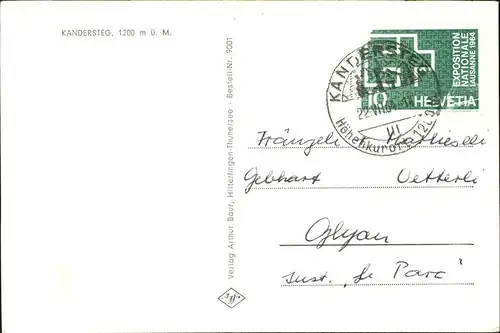 KANDERSTEG, 1200 m ü. M.
Verlag Arthur Baur, Hilterfingen-Thunersee - Bestell-Nr. 9001
EXPOSITION
NATIONALE
LAUSANNE 1964
10
HELVETIA
KANDERSTEG
22.VII.64
Höhenkurort 1200 m
Fränzeli
Gebhart Oetterli
Glyan
Inst. "le Parc"